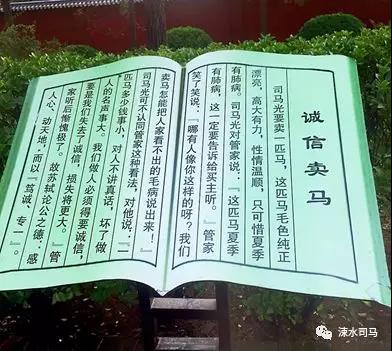 诚信卖马
司马光要卖一匹马，这匹马毛色纯正
漂亮，高大有力，性情温顺，只可惜夏季
有肺病。司马光对管家说：『这匹马夏季
有肺病，这一定要告诉给买主听。』管家
笑了笑说：『哪有人像你这样的呀？我们
卖马怎能把人家看不出的毛病说出来！』
司马光可不认同管家这种看法，对他说：『一
匹马多少钱事小，对人不讲真话，坏了做
人的名声事大。我们做人必须得要诚信，
要是我们失去了诚信，损失将更大。』管
家听后惭愧极了。故苏轼论公之德：感
人心、动天地，而以『笃诚、专一』。
涑水司马